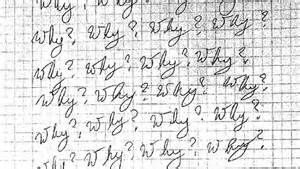 Why? Why? Why? Why?
Why? Why? Why? Why?
Why? Why? Why? Why?
Why? Why? Why? Why?
Why? Why? Why? Why?
Why? Why? Why? Why?